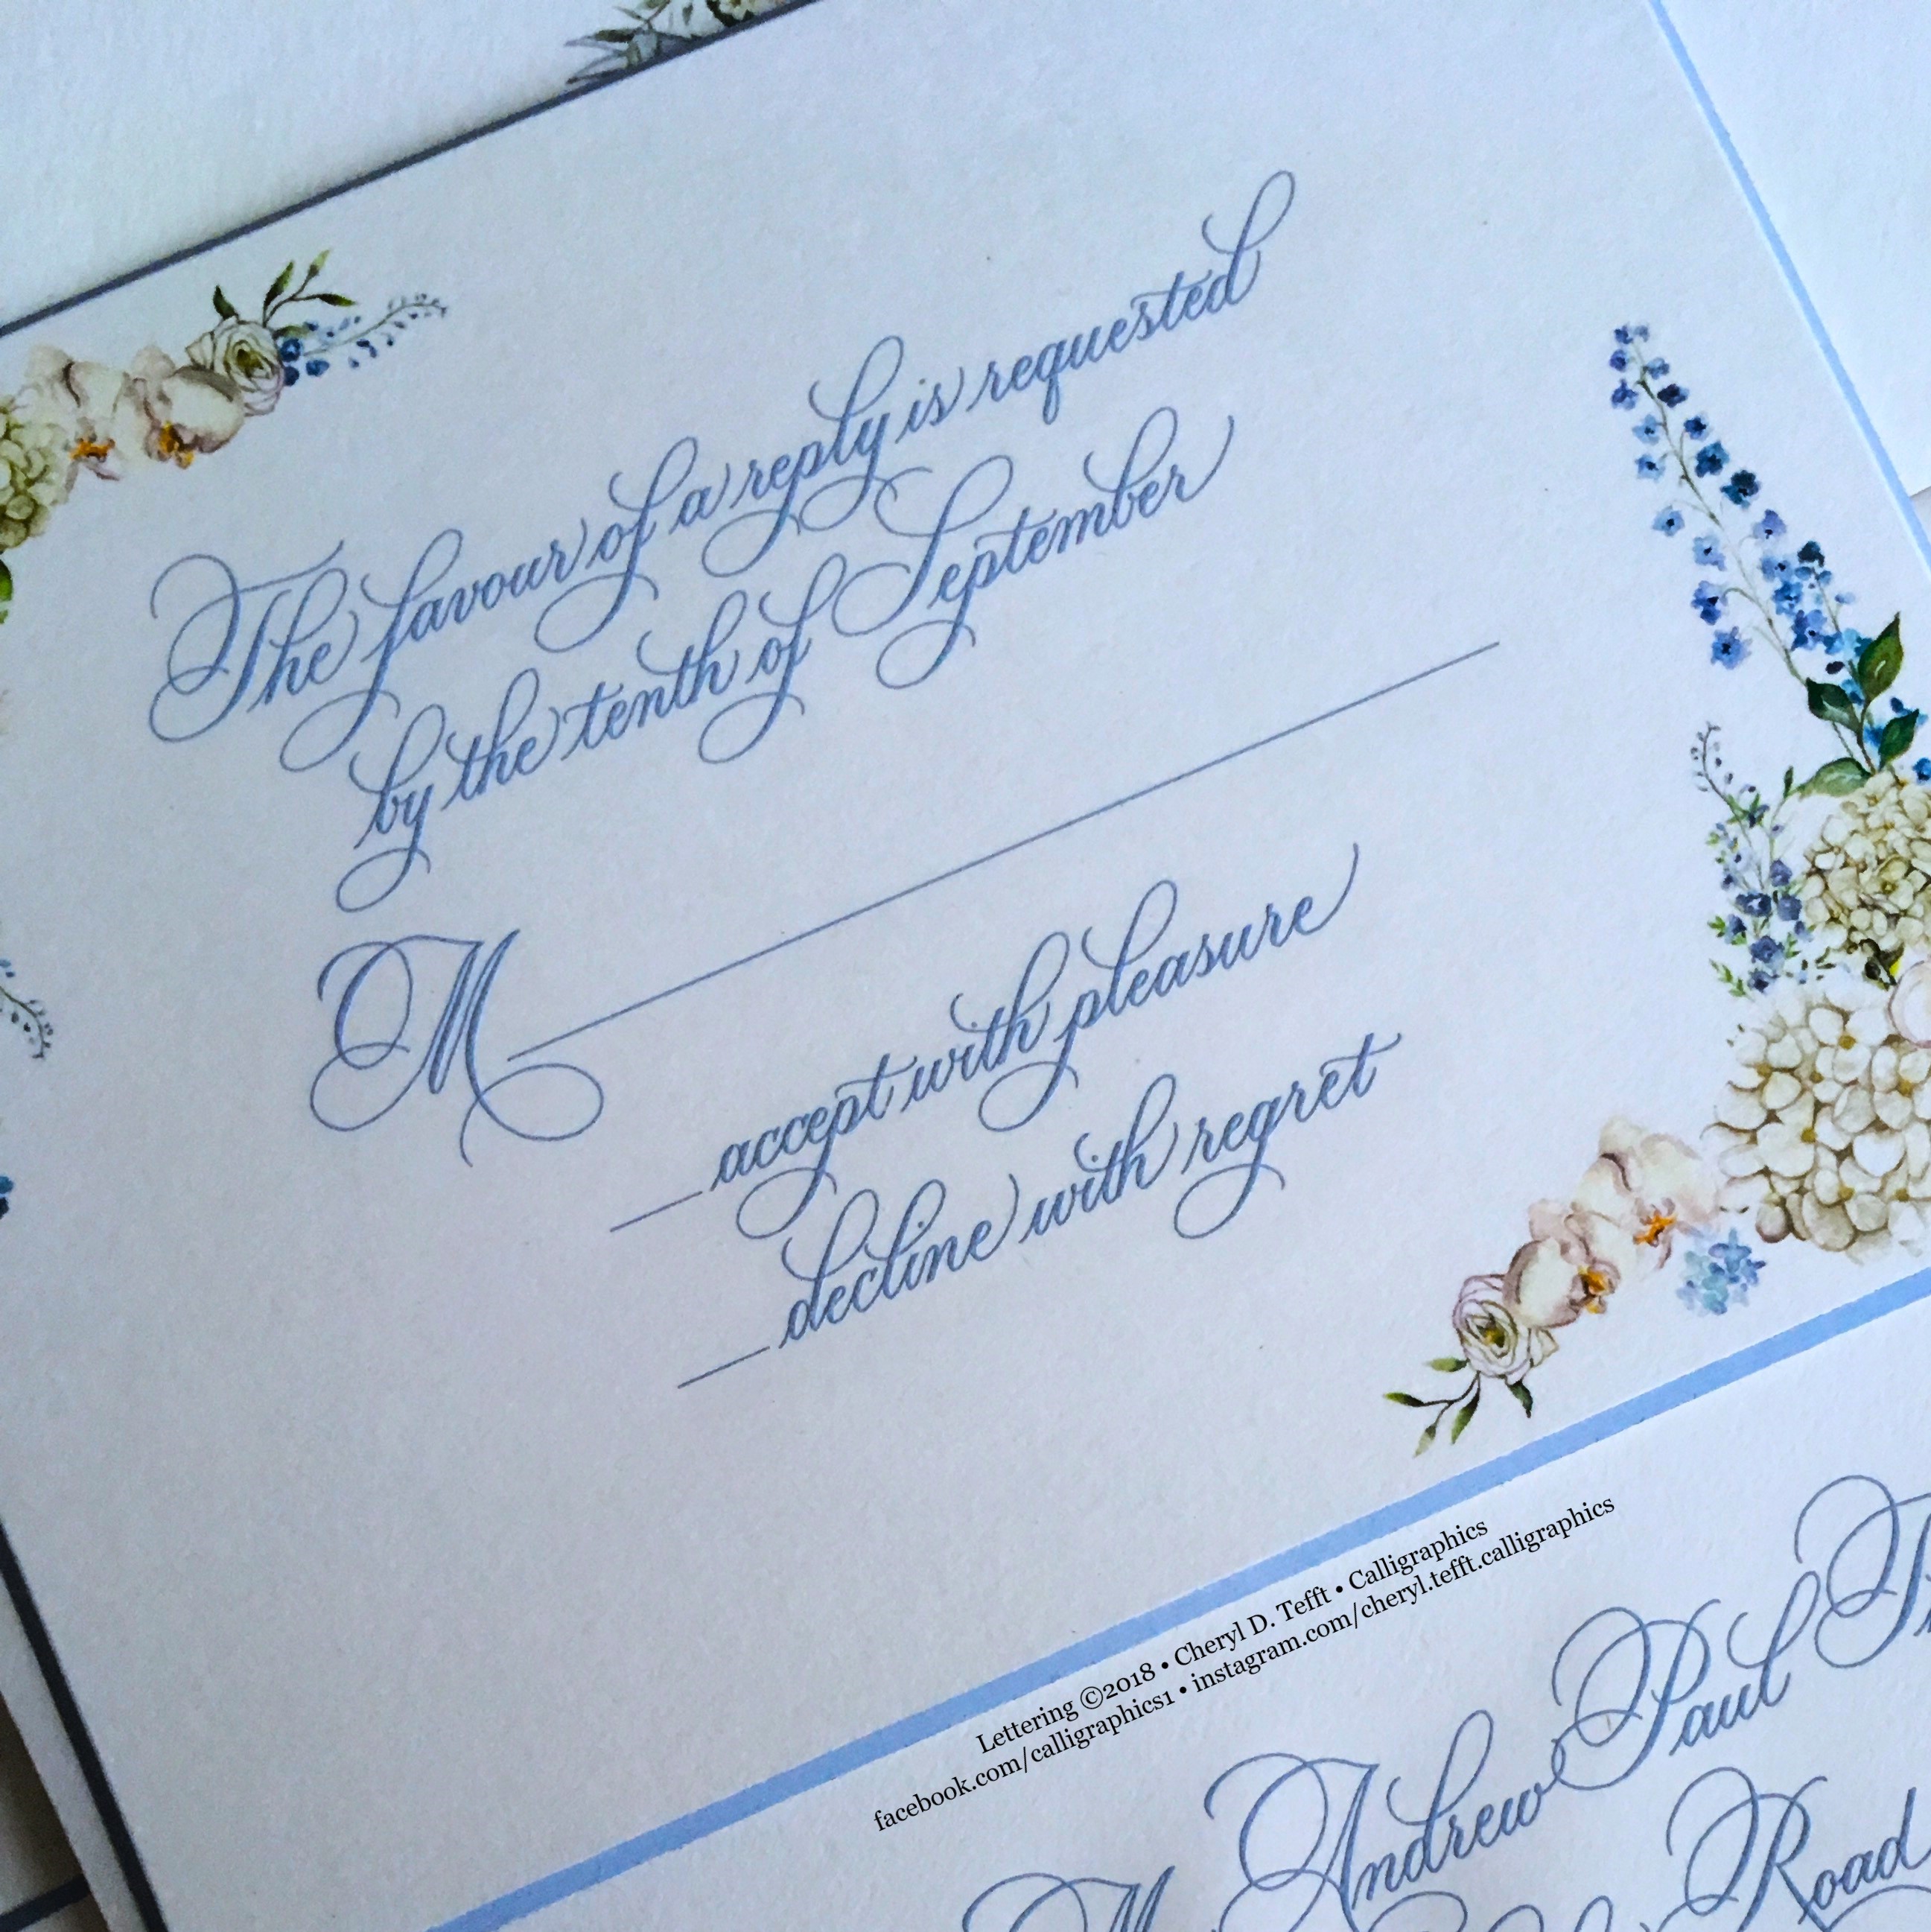 The favour of a reply is requested
by the tenth of September
M
accept with pleasure
decline with regret
Lettering ©2018 • Cheryl D. Tefft • Calligraphics
facebook.com/calligraphics1 • instagram.com/cheryl.tefft.calligraphics
Andrew Paul
Road